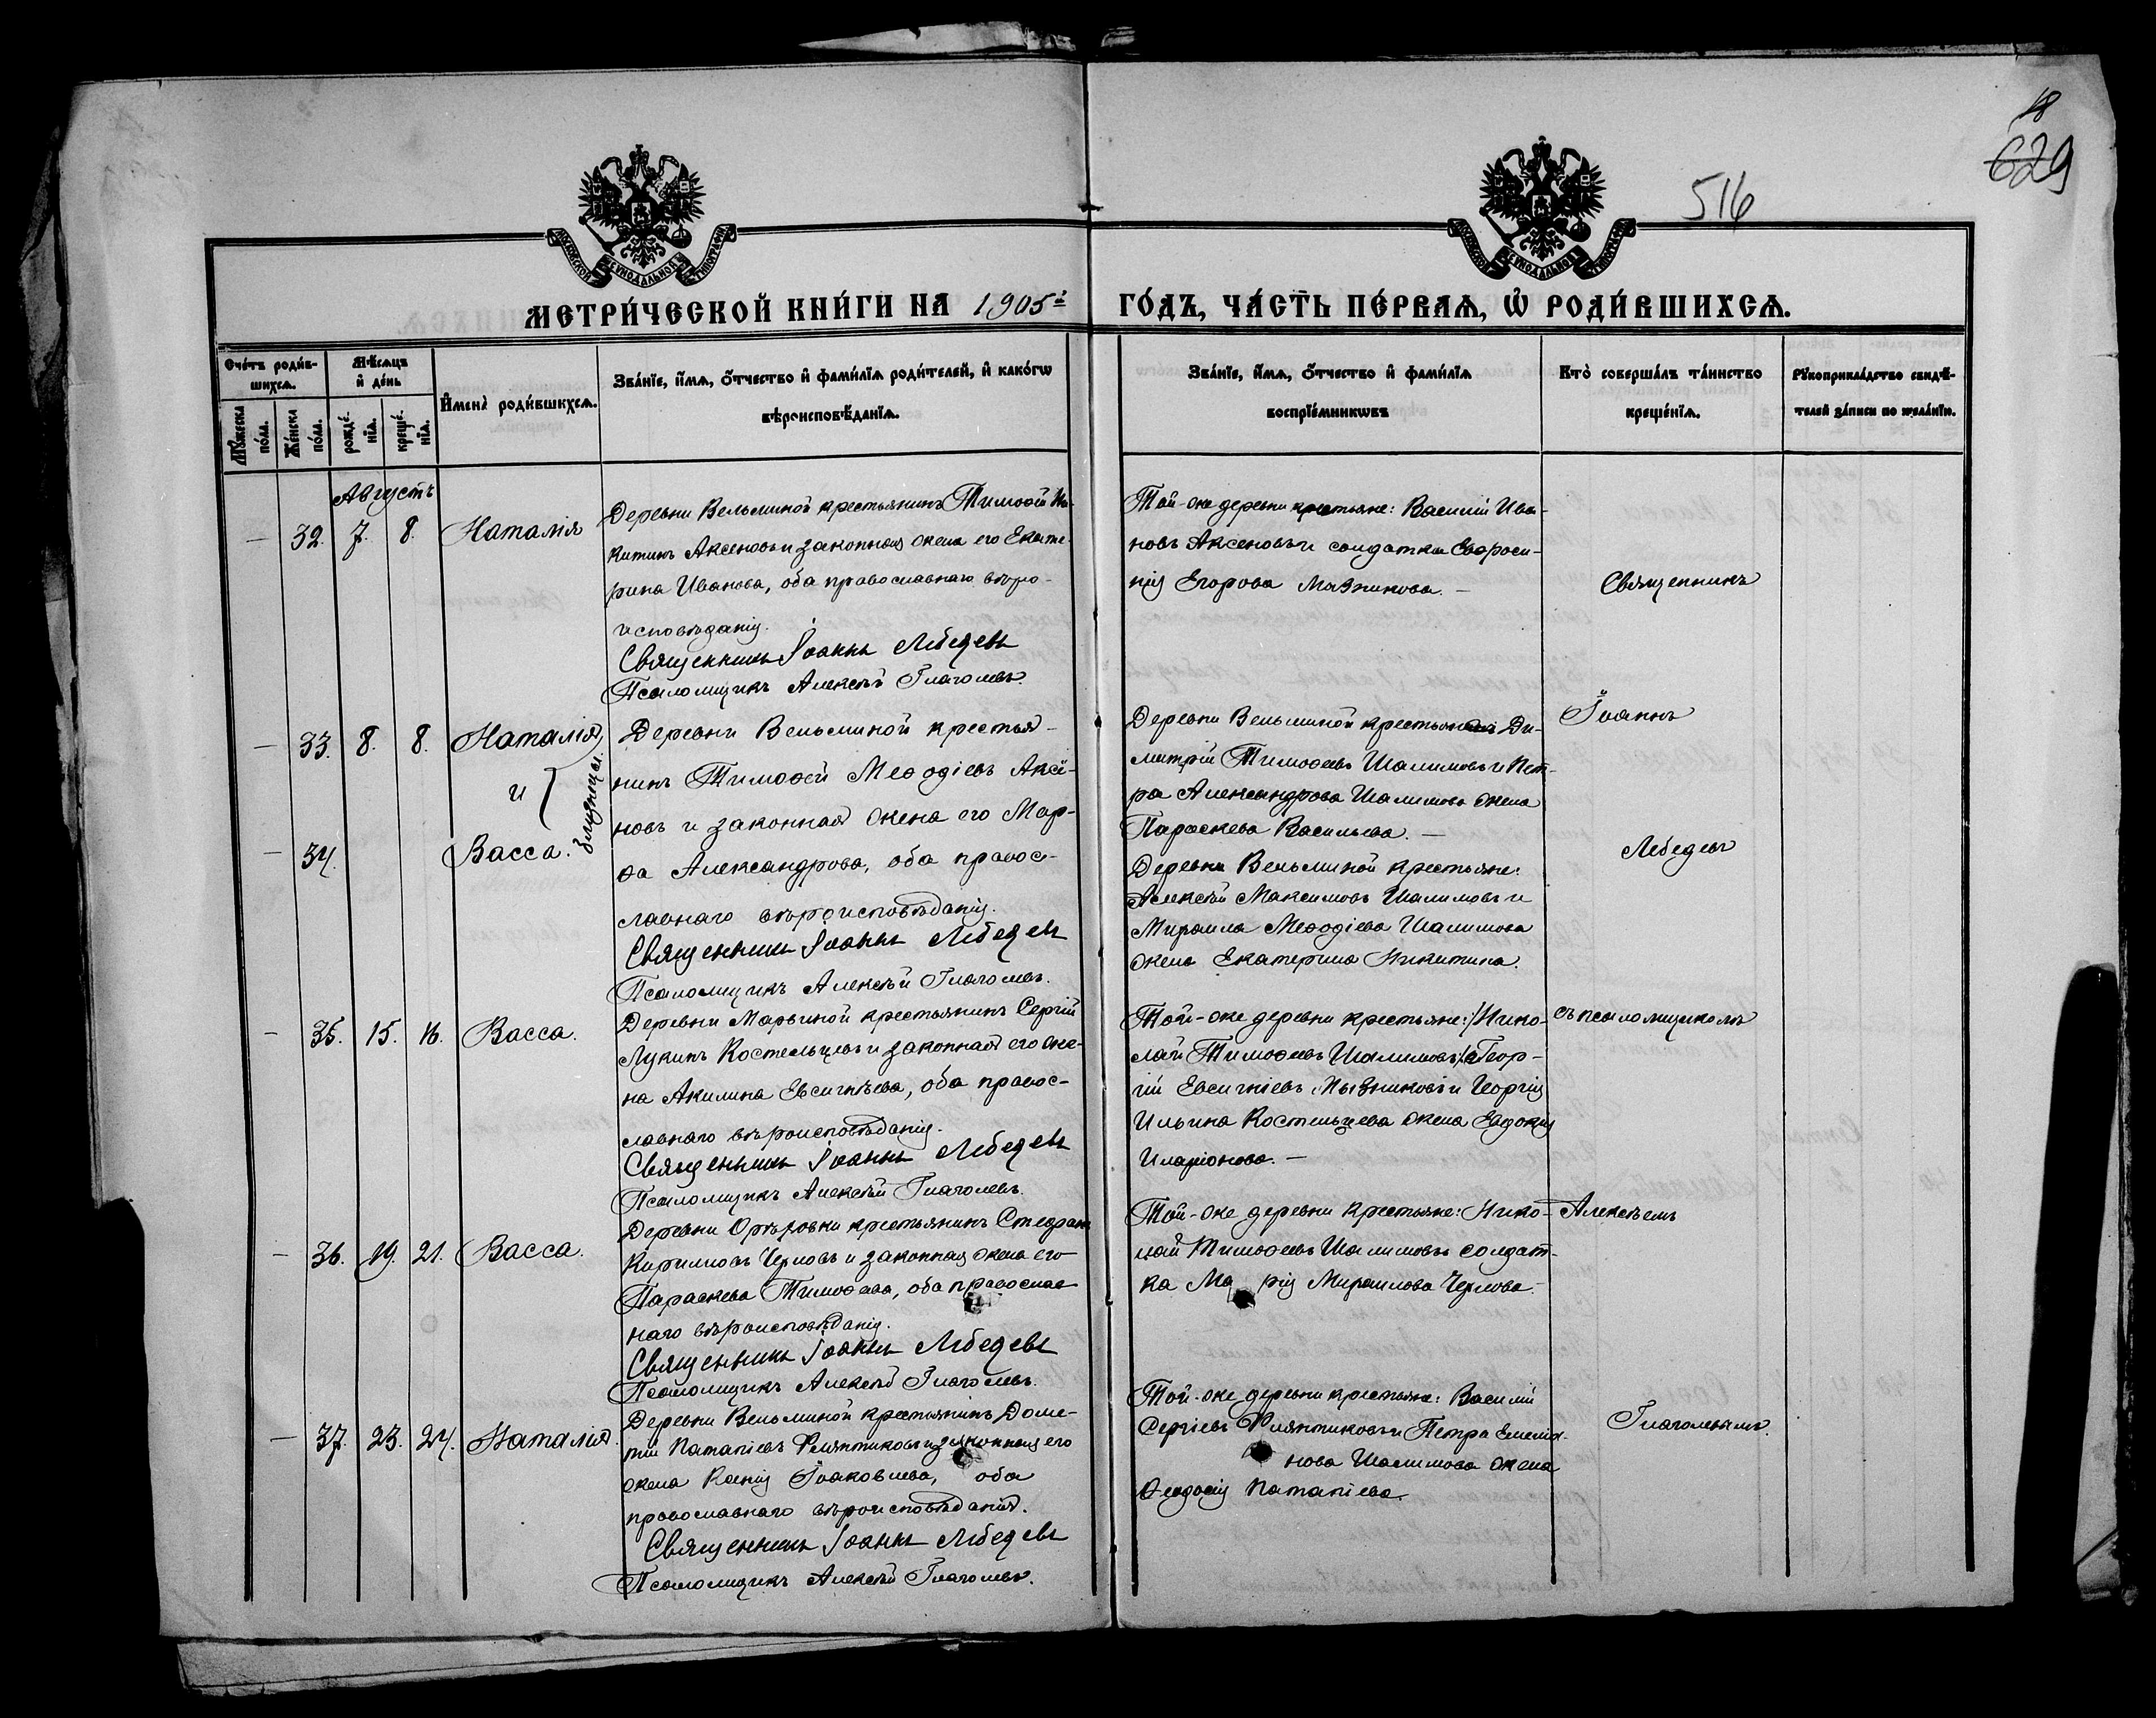 18
629
516
МОСКОВСКОЙ СѴНОДАЛЬНОЙ ТИПОГРАФІИ
МОСКОВСКОЙ СѴНОДАЛЬНОЙ ТИПОГРАФІИ
МЕТРИ́ЧЕСКОЙ КНИ́ГИ НА 1905й ГО́ДЪ, ЧА́СТЬ ПЕ́РВАѦ, Ѡ҆ РОДИ́ВШИХСѦ.
Сче́тъ роди́в-
шихсѧ.
Мѣ́сѧцъ
и҆ де́нь
Мꙋ́жеска
по́ла.
Же́нска
по́ла.
рожде́-
нїѧ.
креще́-
нїѧ.
И҆мена̀ роди́вшихсѧ.
Зва́нїе, и҆́мѧ, ѻ҆́тчество и҆ фами́лїѧ роди́телей, и҆ како́гѡ
вѣроисповѣ́данїѧ.
Зва́нїе, и҆́мѧ, ѻ҆́тчество и҆ фами́лїѧ
воспрїе́мникѡвъ
Кто̀ соверша́лъ та́инство
креще́нїѧ.
Рꙋкоприкла́дство свидѣ́-
телей за́писи по жела́нїю.
Августъ
— 32. 7. 8. Наталія
Деревни Вельминой крестьянинъ Тимоѳей Ни-
китинъ Аксеновъ и законная жена его Екате-
рина Иванова, оба православнаго вѣро-
исповѣданія.
Священникъ Іоаннъ Лебедевъ
Псаломщикъ Алексѣй Глаголевъ.
Той-же деревни крестьяне: Василій Ива-
новъ Аксеновъ и солдатка Евфроси-
нія Егорова Мазникова. —
— 33. 8. 8. Наталія
и
— 34. Васса. близнецы
Деревни Вельминой крестья-
нинъ Тимоѳей Меѳодіевъ Аксе-
новъ и законная жена его Мар-
ѳа Александрова, оба правос-
лавнаго вѣроисповѣданія.
Священникъ Іоаннъ Лебедевъ
Псаломщикъ Алексѣй Глаголевъ.
Деревни Вельминой крестьяне Ди-
митрій Тимоѳеевъ Шалимовъ и Пет-
ра Александрова Шалимова жена
Параскева Васильева. —
Деревни Вельминой крестьяне:
Алексѣй Максимовъ Шалимовъ и
Михаила Меѳодіева Шалимова
жена Екатерина Никитина.
— 35. 15. 16. Васса.
Деревни Марьиной крестьянинъ Сергій
Лукинъ Костельцевъ и законная его же-
на Акилина Евсигнѣева, оба правос-
лавнаго вѣроисповѣданія.
Священникъ Іоаннъ Лебедевъ
Псаломщикъ Алексѣй Глаголевъ.
Той-же деревни крестьяне: /Нико-
лай Тимоѳеевъ Шалимовъ/ Геор-
гій Евсигніевъ и Георгія
Ильина Костельцева жена Евдокія
Иларіонова. —
— 36. 19. 21. Васса.
Деревни Орѣховки крестьянинъ Стефанъ
Кирилловъ Черновъ и законная жена его
Параскева Тимоѳеева, оба православ
наго вѣроисповѣданія.
Священникъ Іоаннъ Лебедевъ
Псаломщикъ Алексѣй Глаголевъ.
Той-же деревни крестьяне: Нико-
лай Тимоѳеевъ Шалимовъ солдат-
ка Ма рія Михаилова Чернова. —
— 37. 23. 24. Наталія.
Деревни Вельминой крестьянинъ Доме-
тій Патапіевъ и законная его
жена Ксенія Іоаковлева, оба
православнаго вѣроисповѣданія.
Священникъ Іоаннъ Лебедевъ
Псаломщикъ Алексѣй Глаголевъ.
Той-же деревни крестьяне: Василій
Сергіевъ и Петра Емелья-
нова Шалимова жена
Ѳеодосія Патапіева.
Священникъ
Іоаннъ
Лебедевъ
съ псаломщикомъ
Алексѣемъ
Глаголевымъ.